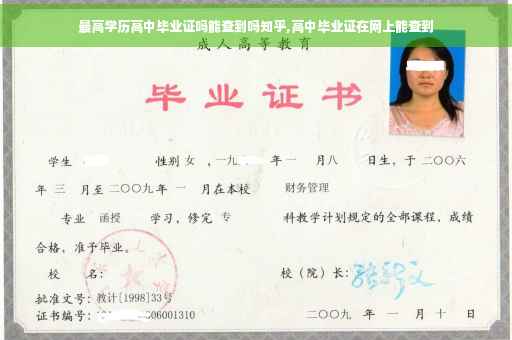 最高学历高中毕业证吗能查到吗知乎,高中毕业证在网上能查到
成人高等教育
毕业证书
学生 性别 女 ,一九 年一 月八 日生，于二〇〇六
年 三 月至二〇〇九年 一 月在本校 财务管理
专业 函授 学习，修完 专 科教学计划规定的全部课程，成绩
合格，准予毕业。
校 名： 校（院）长：
批准文号：教计[1998]33号
证书编号： 06001310 二〇〇九 年 一 月 十 日